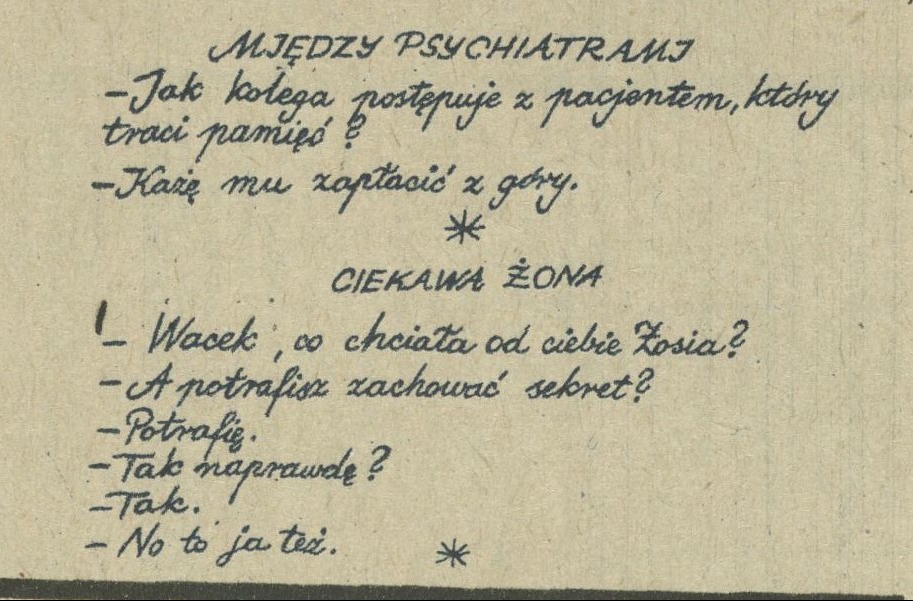 MIĘDZY PSYCHIATRAMI
-Jak kolega postępuje z pacjentem, który
traci pamięć?
-Każę mu zapłacić z góry.
*
CIEKAWA ŻONA
- Wacek, co chciała od ciebie Zosia?
-A potrafisz zachować sekret?
-Potrafię.
-Tak naprawdę?
-Tak.
- No to ja też.
*